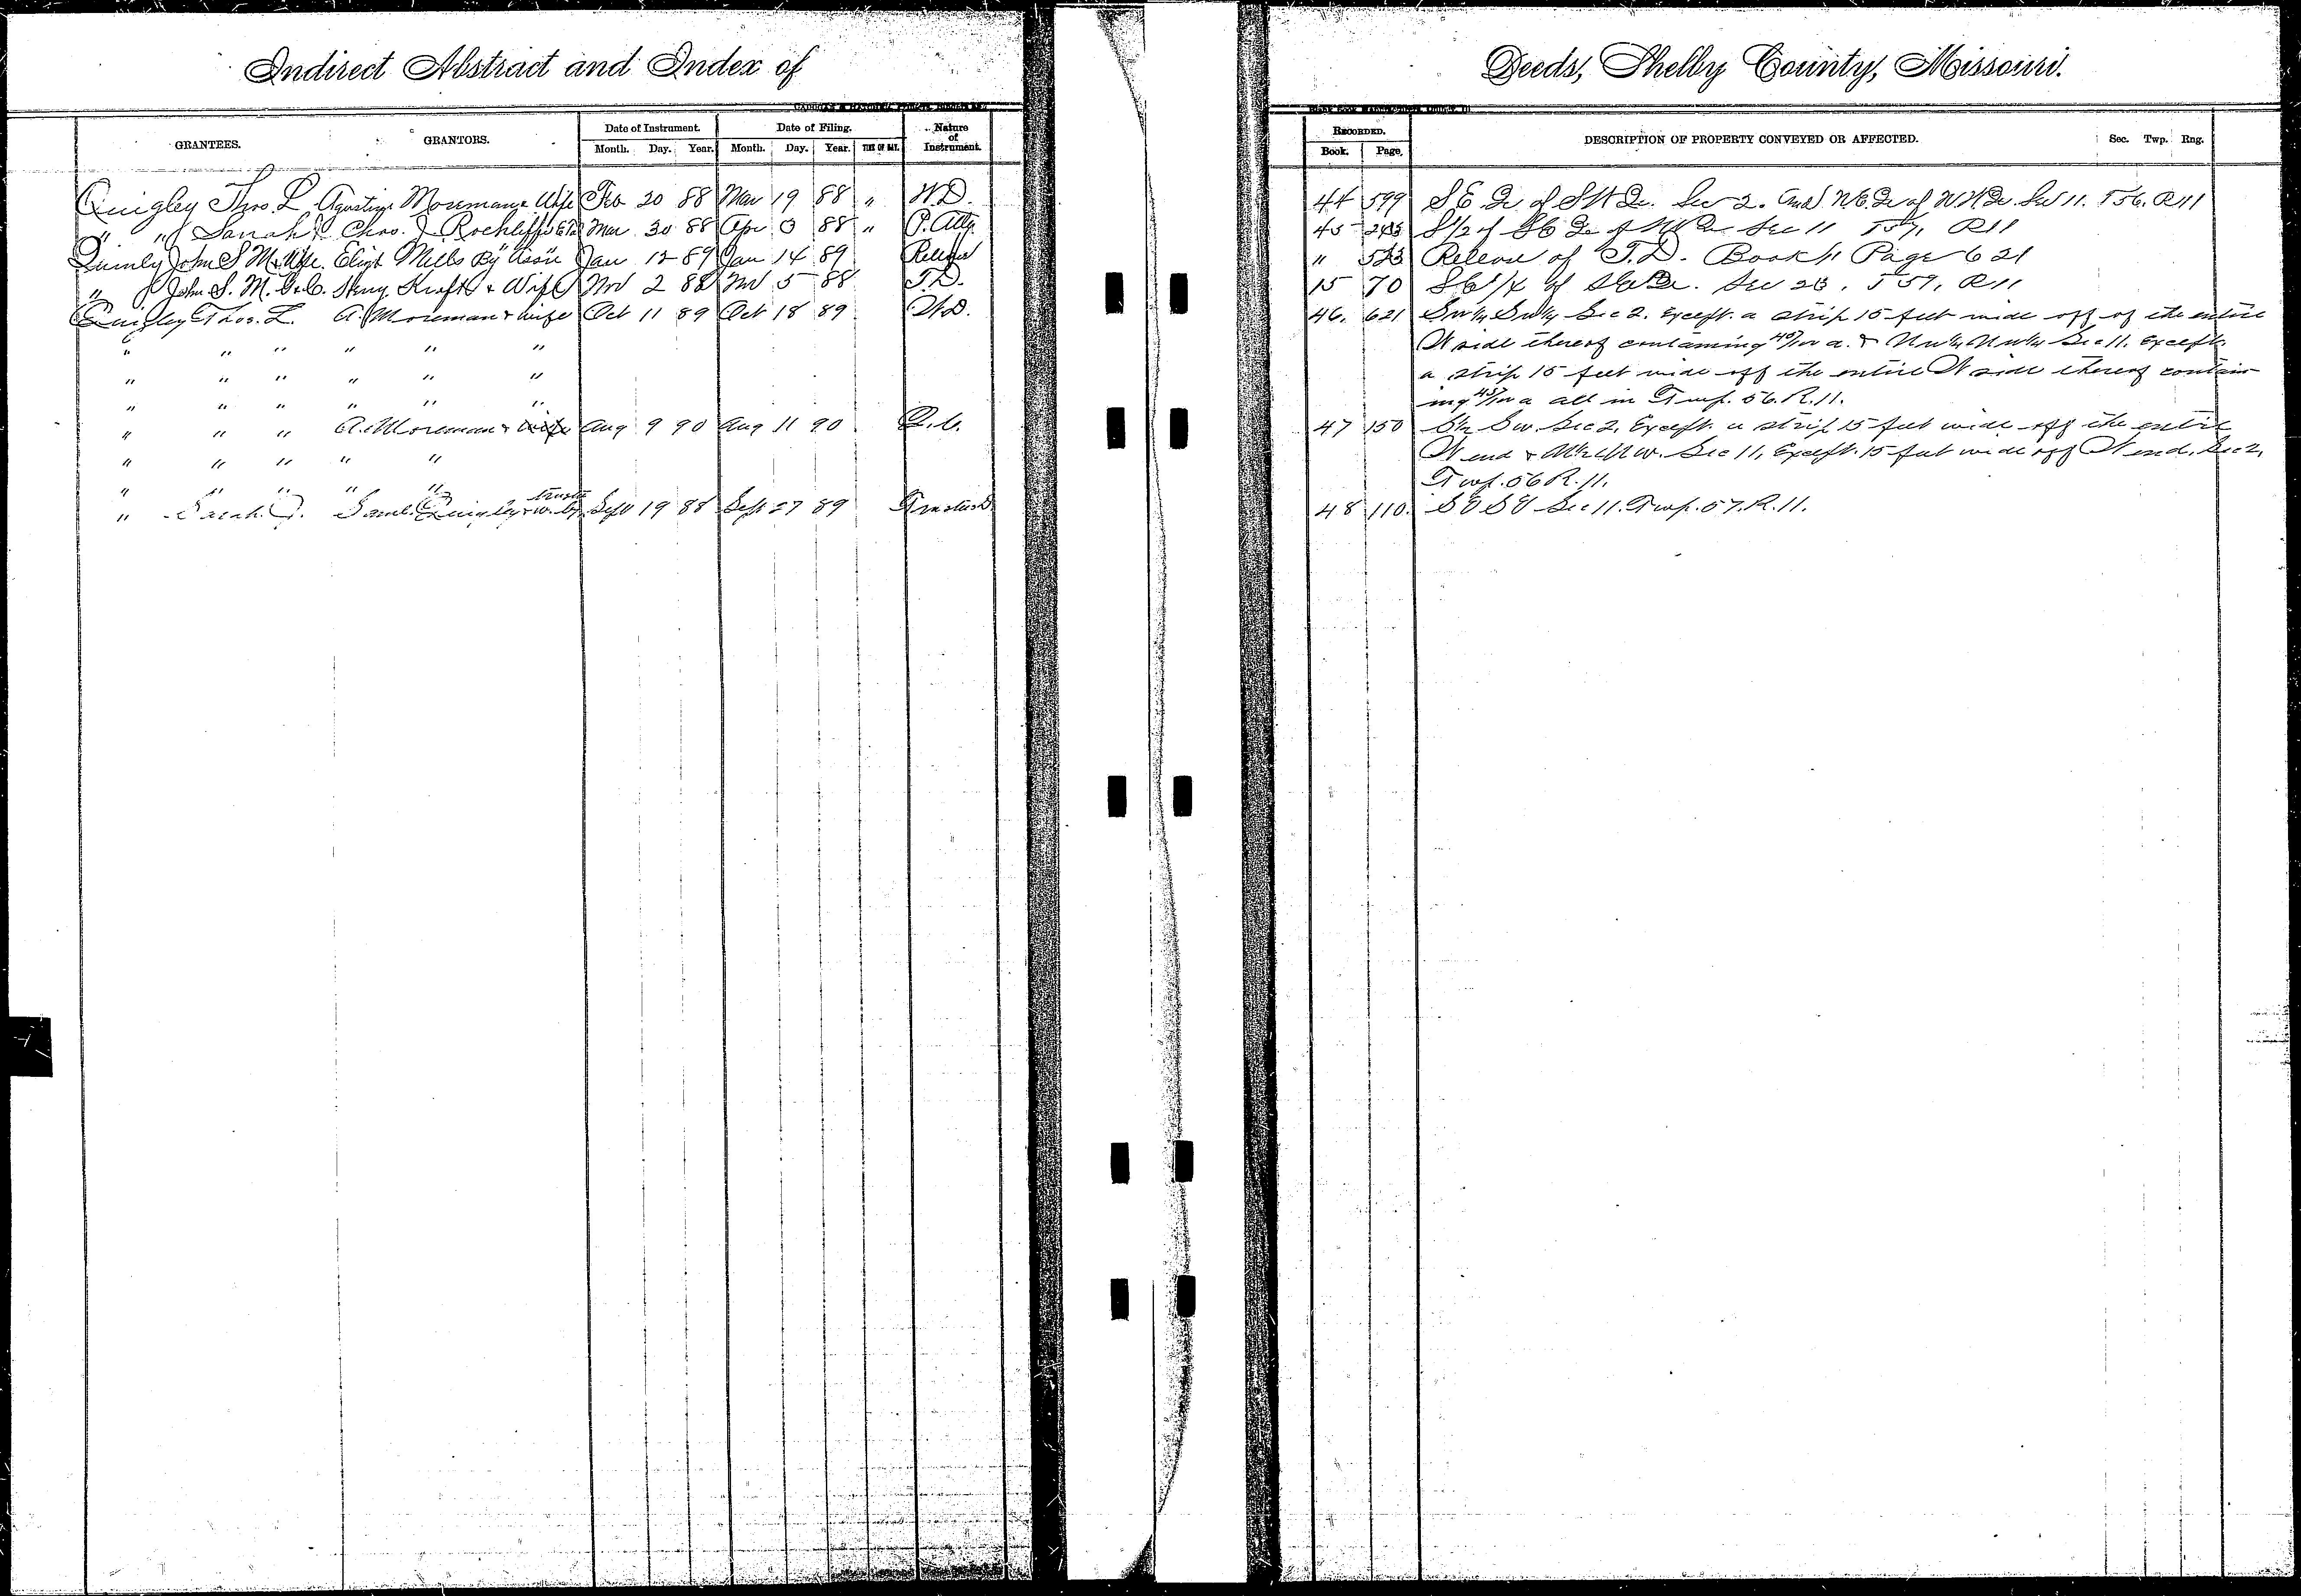 Indirect Abstract and Index of
Deeds, Shelby County, Missouri.
GRANTEES. GRANTORS. Date of Instrument. Date of Filing. Nature of Instrument.
Month. Day. Year. Month. Day. Year. TIME OF DAY.
RECORDED. DESCRIPTION OF PROPERTY CONVEYED OR AFFECTED. Sec. Twp. Rng.
Book. Page.
Quigley Thos. L Moreman & Wife Feb 20 88 Mar 19 88 " W.D. 44 599 S E Qr of S W Qr. Sec 2. And N E. Qr of N W Qr. Sec 11. T 56. R 11
" " Sarah J Chas. J. Mar 30 88 Apr 3 88 " P. Atty. 45 S 1/2 of S E Qr of Sec 11 T 57, R 11
John S M & Wife. Mills By Jan 12 89 Jan 14 89 Release " 523 Release of T.D. Book Page 621
" John S. M. Henry Kraft & Wife Nov 2 88 Nov 5 88 T.D. 15 70 of Sec T 57, R 11
Quigley Thos. L. A. Moreman & wife Oct 11 89 Oct 18 89 W.D. 46. 621 Sec 2. Except. a strip 15 feet wide off of the entire
" " " " " " W side thereof containing a. & Sec 11. Except.
" " " " " " a strip 15 feet wide off the entire W side thereof contain-
" " " " " " ing a all in Twp. 56. R. 11.
" " " A. Moreman & wife Aug 9 90 Aug 11 90 Q.C. 47 150 Sw. Sec 2, Except. a strip 15 feet wide off the entire
" " " " " W end & Nw. Sec 11, Except. 15 feet wide off W end. Sec 2,
" " " " " Twp. 56 R. 11.
" Sarah J. Saml. Quigley & w. by trustee Sept 19 88 Sept 27 89 Trustees D 48 110. S E S E Sec 11. Twp. 57. R. 11.